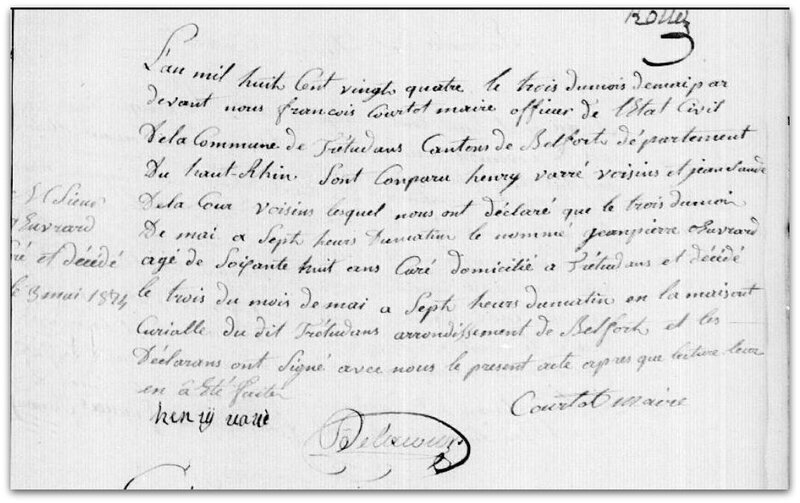 L'an mil huit Cent vingt quatre le trois dumois demai par
devant nous françois Courtot maire officier de l'Etat Civil
Dela Commune de Trétudans Cantons de Belfort département
Du haut-Rhin Sont Conparu henry varré voisins et jeanclaude
Dela Cour voisins lesquel nous ont déclaré que le trois dumois
De mai a Septh heurs Dumatin le nommé jeanpierre Euvrard
agé de Soixante huit ans Curé domicilié a Trétudans et décédé
le trois du mois de mai a Septh heurs dumatin en la maisont
Curialle du dit Trétudans arrondissement de Belfort et les
Déclarans ont Signé avec nous le present acte apres que lecture leur
en à Eté faitée
Courtot maire
henrÿ varré
Delacour
Sieur
Euvrard
et décédé
le 3 mai 1824